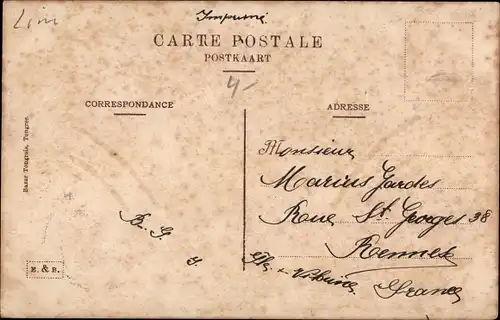 Lim
Imprimé
CARTE POSTALE
POSTKAART
4-
CORRESPONDANCE
ADRESSE
Bazar Tongrois, Tongres.
Monsieur
Marius Gardes
Rue St. Georges 38
Rennes
Ille - Vilaine
France
B. G.
E. & B.